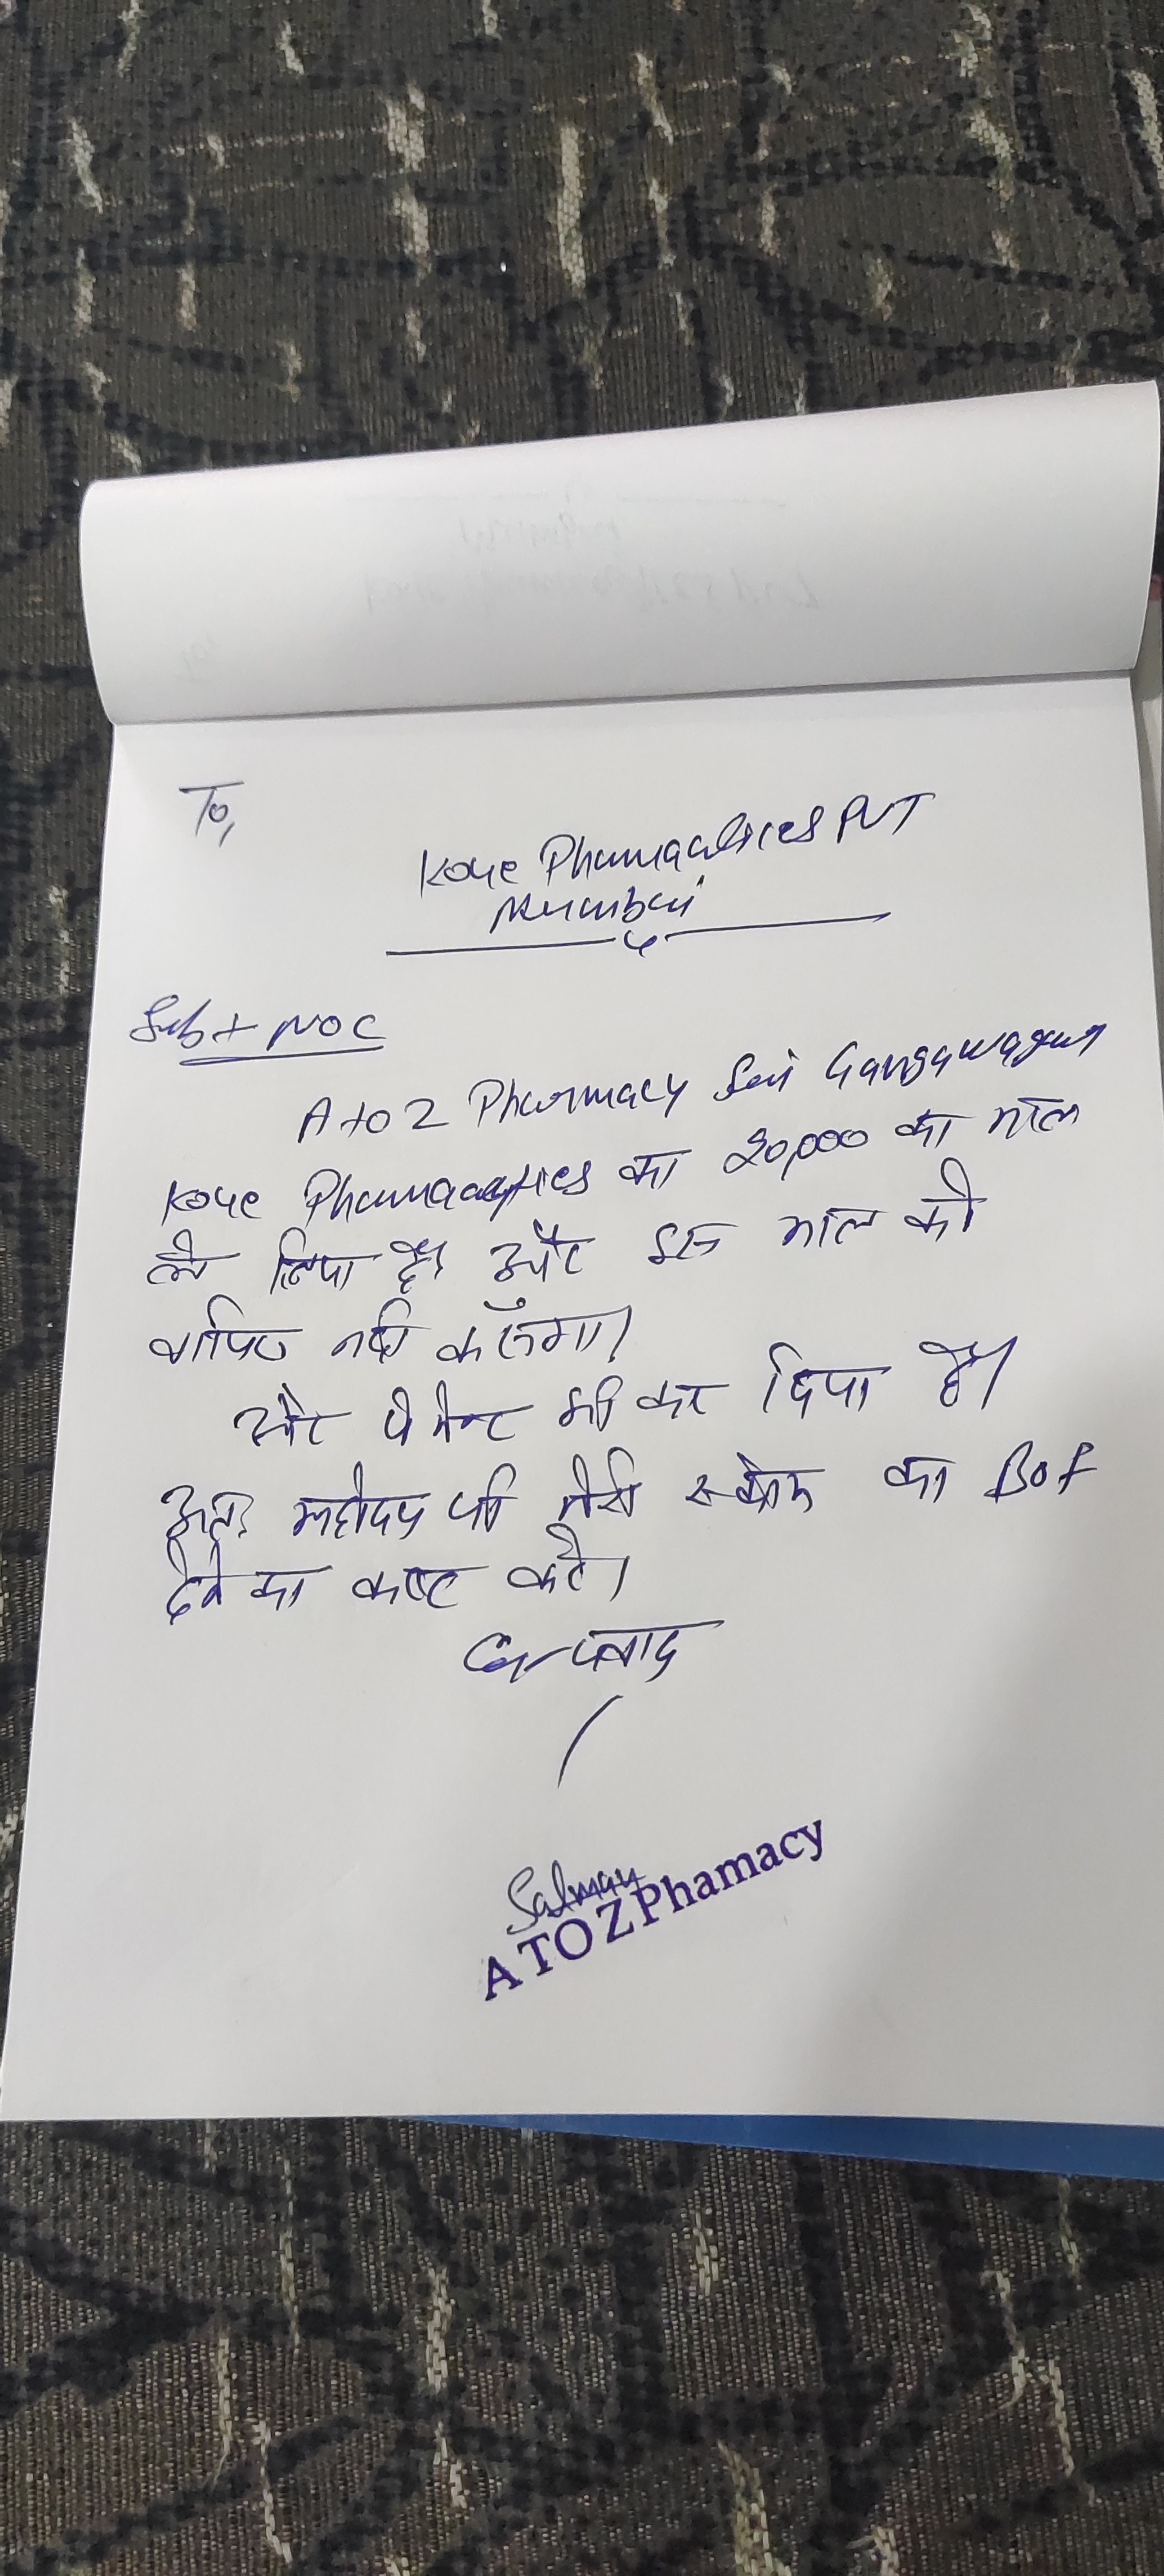 To,
Koye Phamacutices PVT
Mumbai
Sub + NOC
A to Z Pharmacy Sri Ganganagar
Koye Phamacutices का 20,000 का माल
ले लिया है। और इस माल को
वापिस नही करूँगा।
और पेमेन्ट भी कर दिया है।
अतः महोदय जी मेरी स्कीम का
देने का कष्ट करे।
धन्यवाद
Salman
A TO Z Phamacy